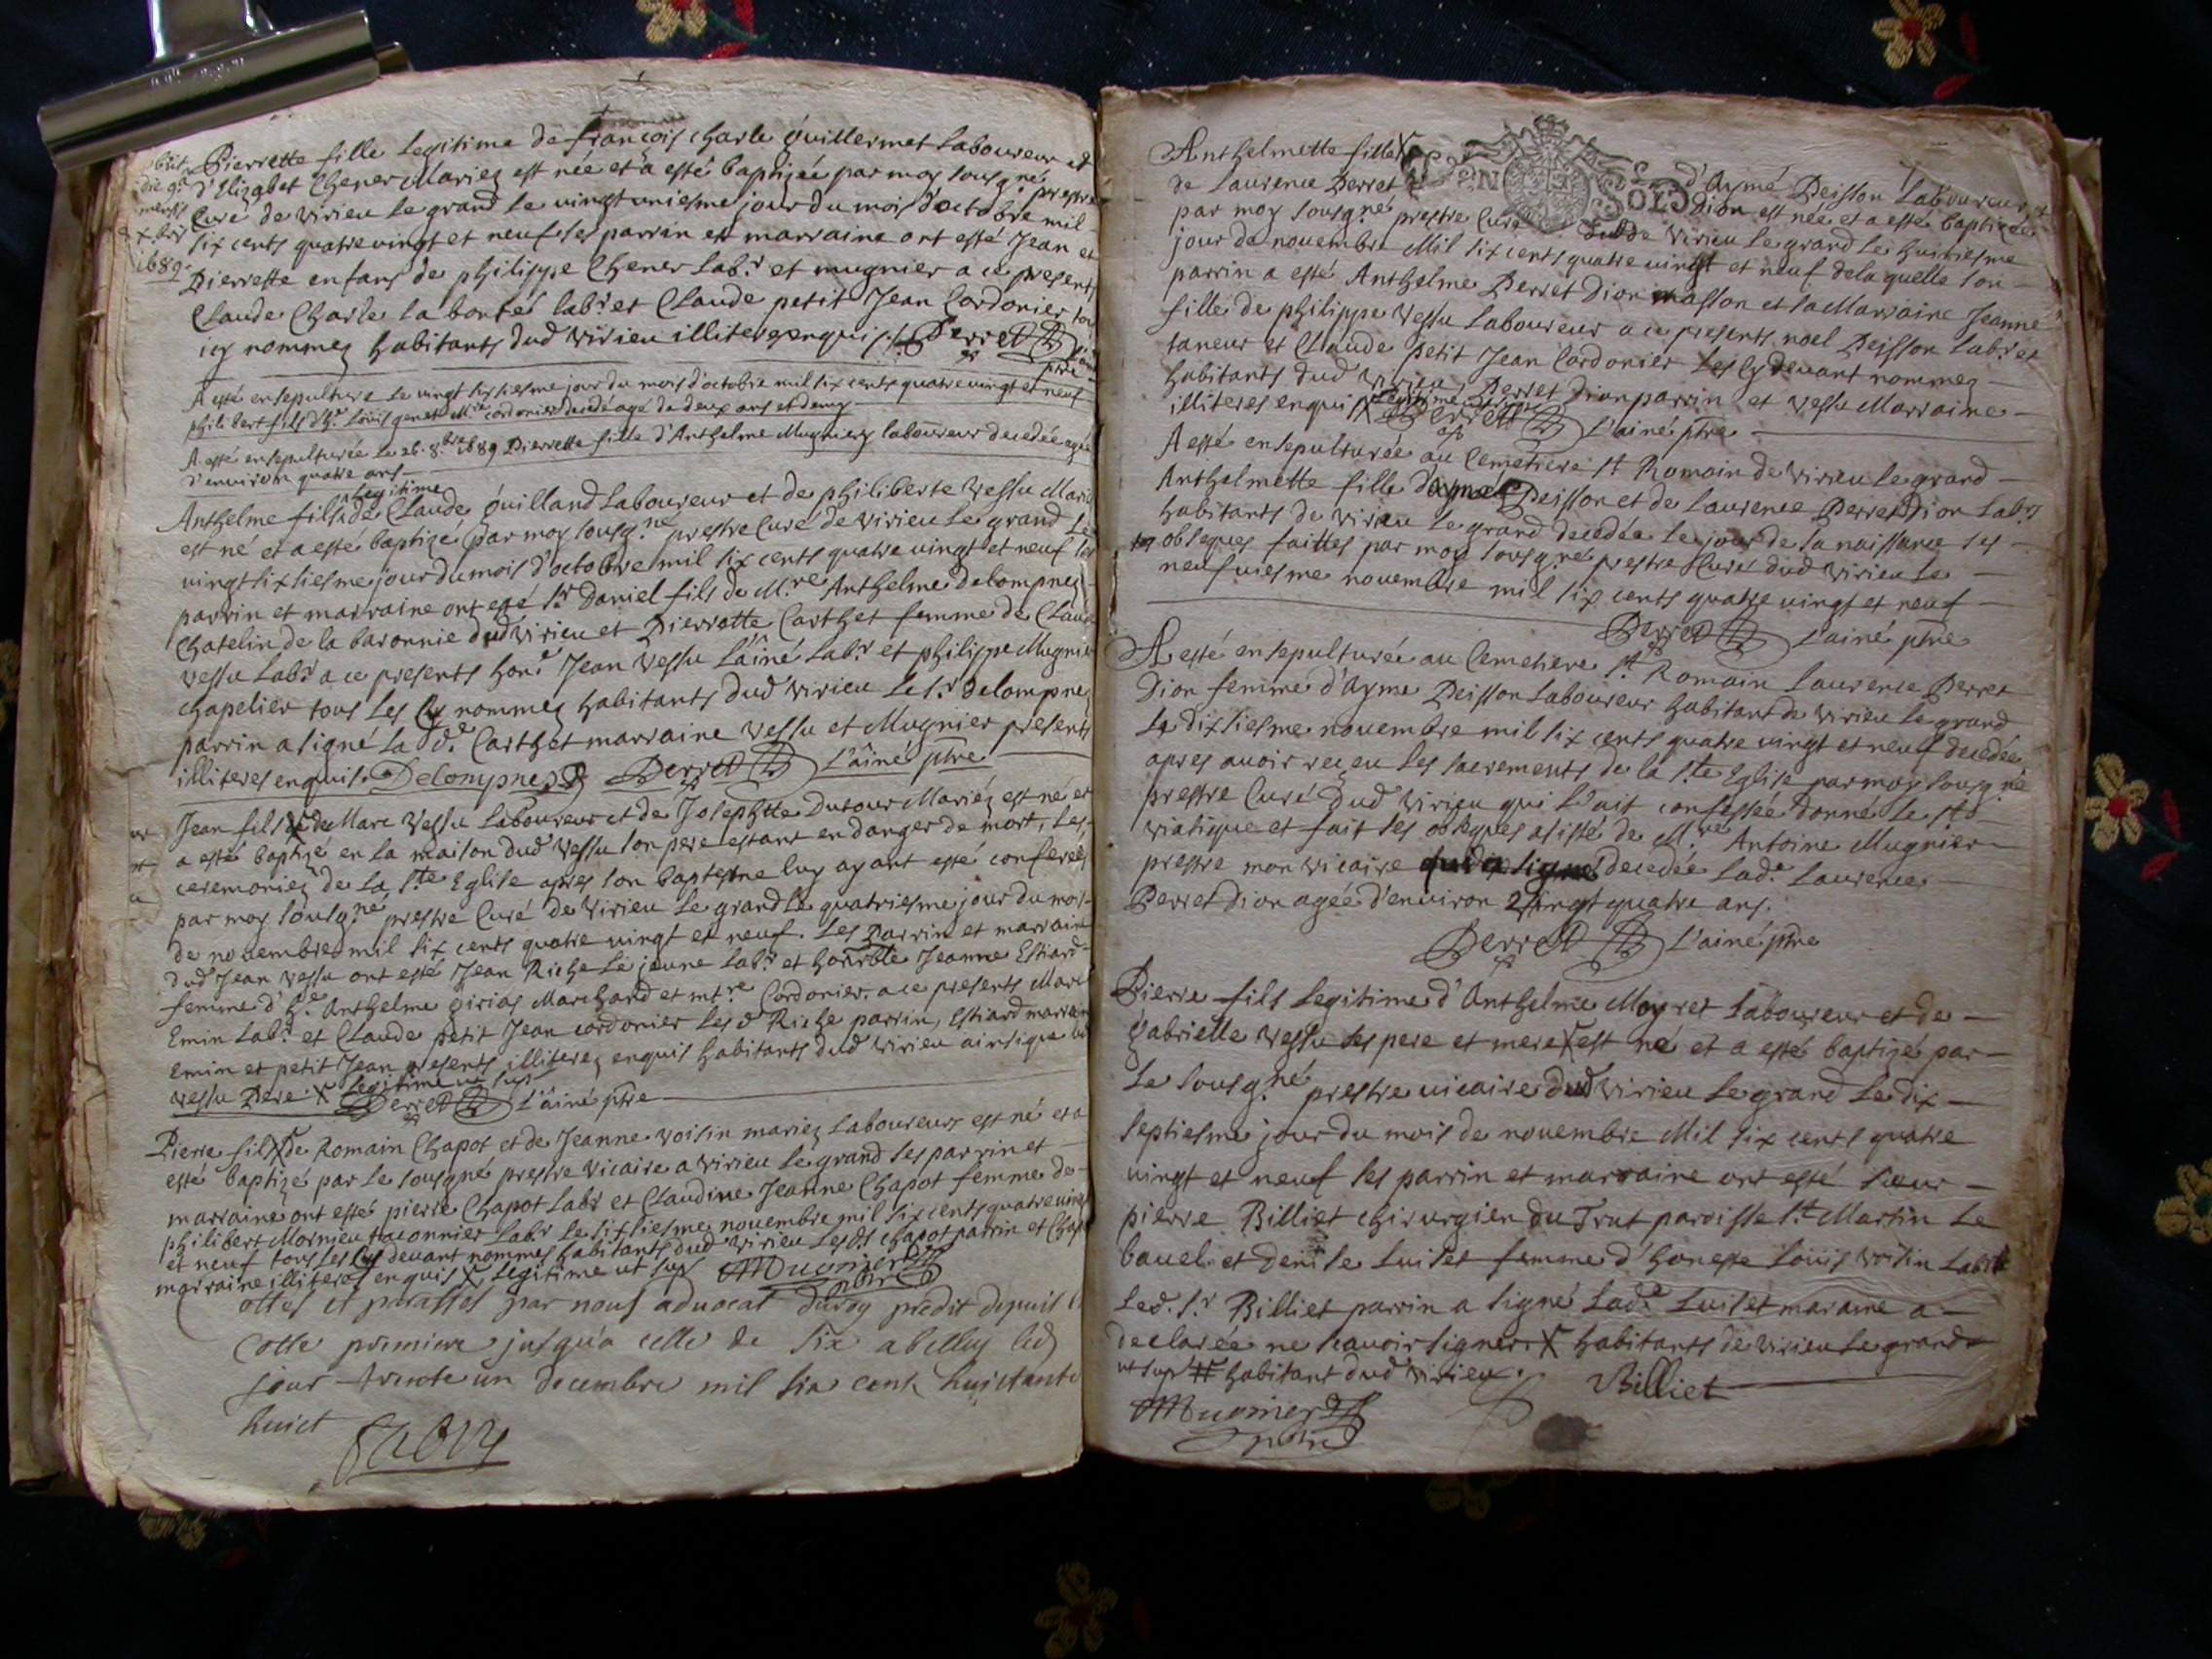 Pierrette fille legitime de françois charle Guillermet Laboureur et
d'Elizabet Chener Mariez est née et a esté baptizée par moy sousg.né prestre
Curé de virieu le grand le vingtuniesme jour du mois d'octobre mil
six cents quatre vingt et neuf ses parrin et marraine ont esté Jean et
Pierrette enfans de philippe Chener lab.r et mugnier a ce presents
Claude Charle la bonté lab.r et Claude petit Jean Cordonier tou
icy nommez habitants dud virieu illiteres enquis. Perret L'ainé
ptre
obiit
die 9a
mensis
x bris
1689.
A esté ensepulturé le vingt sixsiesme jour du mois d'octobre mil six cents quatre vingt et neuf
philibert fils d'h.e Loüis genet M.re cordonier decedé agé de deux ans et demy
A esté ensepulturée le 26. 8.bre 1689 Pierrette fille d'Anthelme Mugnier laboureur decedée agée
d'environ quatre ans
legitime
Anthelme fils de Claude Guilland Laboureur et de philiberte vessu Mariez
est né et a esté baptizé par moy sousg.né prestre Curé de virieu le grand le
vingt sixsiesme jour du mois d'octobre mil six cents quatre vingt et neuf son
parrin et marraine ont esté s.r Daniel fils de M.re Anthelme delompnez
Chatelin de la baronnie dud virieu et Pierrette Carthet femme de Claude
vessu lab.r a ce presents hon.e Jean vessu L'ainé lab.r et philippe Mugnier
chapelier tous les cy nommez habitants dud virieu le s.r delompnez
parrin a signé la d.e Carthet marraine vessu et Mugnier presents
illiteres enquis. Delompnes Perret L'ainé ptre
Jean fils X de Marc vessu Laboureur et de Josephtte Dufour Mariéz est né et
a esté baptizé en la maison dud vessu son pere estant en danger de mort, les
ceremoniez de la s.te Eglise apres son baptesme luy ayant esté conferées
par moy sousg.né prestre Curé de virieu le grand le quatriesme jour du mois
de novembre mil six cents quatre vingt et neuf. Les Parrin et marraine
dud Jean vessu ont esté Jean Riche le jeune lab.r et honnrble Jeanne Estiard
femme d'h.e Anthelme girias Marchand et mt.re Cordonier. a ce presents Marc
Emin lab.r et Claude petit Jean cordonier les d Riche parrin, Estiard marraine
emin et petit Jean presents illiterez enquis habitants dud virieu ainsi que led
vessu Pere. X legitime ut sup
Perret L'ainé ptre
Pierre fils X de Romain Chapot et de Jeanne voisin mariez Laboureurs est né et a
esté baptizé par le sousgné prestre vicaire a virieu le grand ses parrin et
marraine ont esté pierre Chapot lab.r et Claudine Jeanne Chapot femme de
philibert Mornieu lab.r le sixsiesme novembre mil six cents quatre vingt
et neuf tous les cy devant nommes habitants dud virieu les d.s chapot parrin et Chapot
marraine illiteres enquis X legitime ut sup Mugnier
ptre
Cottes et parassés par nous advocat duroy predit depuis la
Cotte premiere jusqu'a celle de six a belley led
jour trente un decembre mil six cent huictante
huict
Anthelmette fille X d'Aymé Peisson Laboureur et
de Laurence Perret Dion est née et a esté baptizée
par moy sousg.né prestre Curé dud virieu le grand le huictiesme
jour de novembre Mil six cents quatre vingt et neuf de la quelle son
parrin a esté Anthelme Perret Dion masson et sa Marraine Jeanne
fille de philippe vessu Laboureur a ce presents noel Peisson lab.r et
taneur et Claude petit Jean Cordonier les cy devant nommez
habitants dud virieu, Perret Dion parrin et vessu Marraine
illiteres enquis X legitime
Perret L'ainé ptre
A esté ensepulturée au Cemetiere s.t Romain de virieu le grand
Anthelmette fille d'aymé Peisson et de Laurence Perret Dion lab.rs
habitants de virieu le grand decedée le jour de sa naissance ses
obseques faittes par moy sousg.né prestre Curé dud virieu le
neufviesme novembre mil six cents quatre vingt et neuf
Perret L'ainé ptre
A esté ensepulturée au Cemetiere s.t Romain Laurence Perret
Dion femme d'Ayme Peisson Laboureur habitant de virieu le grand
le dixsiesme novembre mil six cents quatre vingt et neuf decedée
apres avoir reçeu les sacrements de la s.te Eglise par moy sousg.né
prestre Curé dud virieu qui l'ait confessée donné le st
viatique et fait ses obseques asisté de M.re Antoine Mugnier
prestre mon vicaire decedée lad.e Laurence
Perret Dion agée d'environ vingt quatre ans.
Perret L'ainé ptre
Pierre fils legitime d'Anthelme Moyret Laboureur et de
gabrielle vessu ses pere et mere X est né et a esté baptizé par
le sousg.né prestre vicaire dud virieu le grand le dix
septiesme jour du mois de novembre Mil six cents quatre
vingt et neuf ses parrin et marraine ont esté sieur
pierre Billiet chirurgien du Trut paroisse s.t Martin le
bavel et denise Luiset femme d'honeste Loüis voisin lab.r #
led. s.r Billiet parrin a signé lad.e Luiset maraine a
declarée ne scavoir signer X habitants de virieu le grand
ut sup # habitant dud virieu. Billiet
Mugnier
ptre